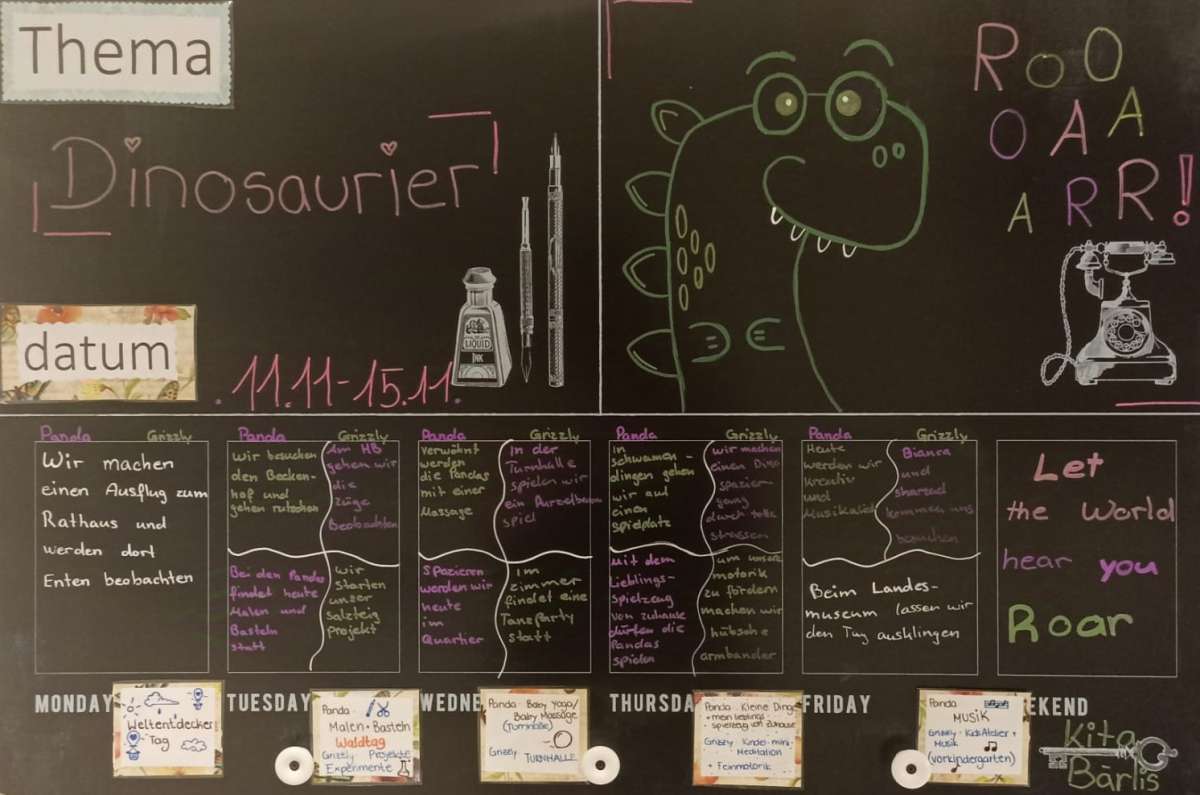 Thema
Dinosaurier
datum
11.11-15.11.
LIQUID
INK
RoO
OAA
ARR!
Panda Grizzly
Wir machen
einen Ausflug zum
Rathaus und
werden dort
Enten beobachten
MONDAY
Panda Grizzly
Wir besuchen
den Becken-
hof und
gehen rutschen
Am HB
gehen wir
die
Züge
Beobachten
Bei den Pandas
findet heute
Malen und
Basteln
statt
Wir
starten
unser
Salzteig
projekt
TUESDAY
Panda Grizzly
Verwöhnt
werden
die Pandas
mit einer
Massage
In der
Turnhalle
spielen wir
ein Purzelbaum
spiel
Spazieren
werden wir
heute
im
Quartier
Im
Zimmer
findet eine
Tanzparty
statt
WEDNE
Panda Grizzly
In
schwamen-
dingen gehen
wir auf
einen
Spielplatz
Wir machen
einen Dino
spazier-
gang
durch tolle
strassen
Mit dem
Lieblings-
Spielzeug
von zuhause
dürfen die
Pandas
spielen
um unsere
motorik
zu fördern
machen wir
hübsche
armbänder
THURSDA
Panda Grizzly
Heute
werden wir
kreativ
und
Musikalisch
Bianca
und
sharzad
kommen uns
besuchen
Beim Landes-
museum lassen wir
den Tag ausklingen
FRIDAY
Let
the World
hear you
Roar
EKEND
Weltentdecker
Tag
Panda
Malen + Basteln
Waldtag
Grizzly Projekte
Experimente
Panda Baby Yoga/
Baby Massage
(Turnhalle)
Grizzly TURNHALLE
Panda Kleine Dinge
+ mein lieblings-
spielzeug von zuhause
Grizzly Kinder-mini-
Meditation
+ Feinmotorik
Panda
MUSIK
Grizzly - KidsAtelier +
Musik
(Vorkindergarten)
Kita
Bärlis